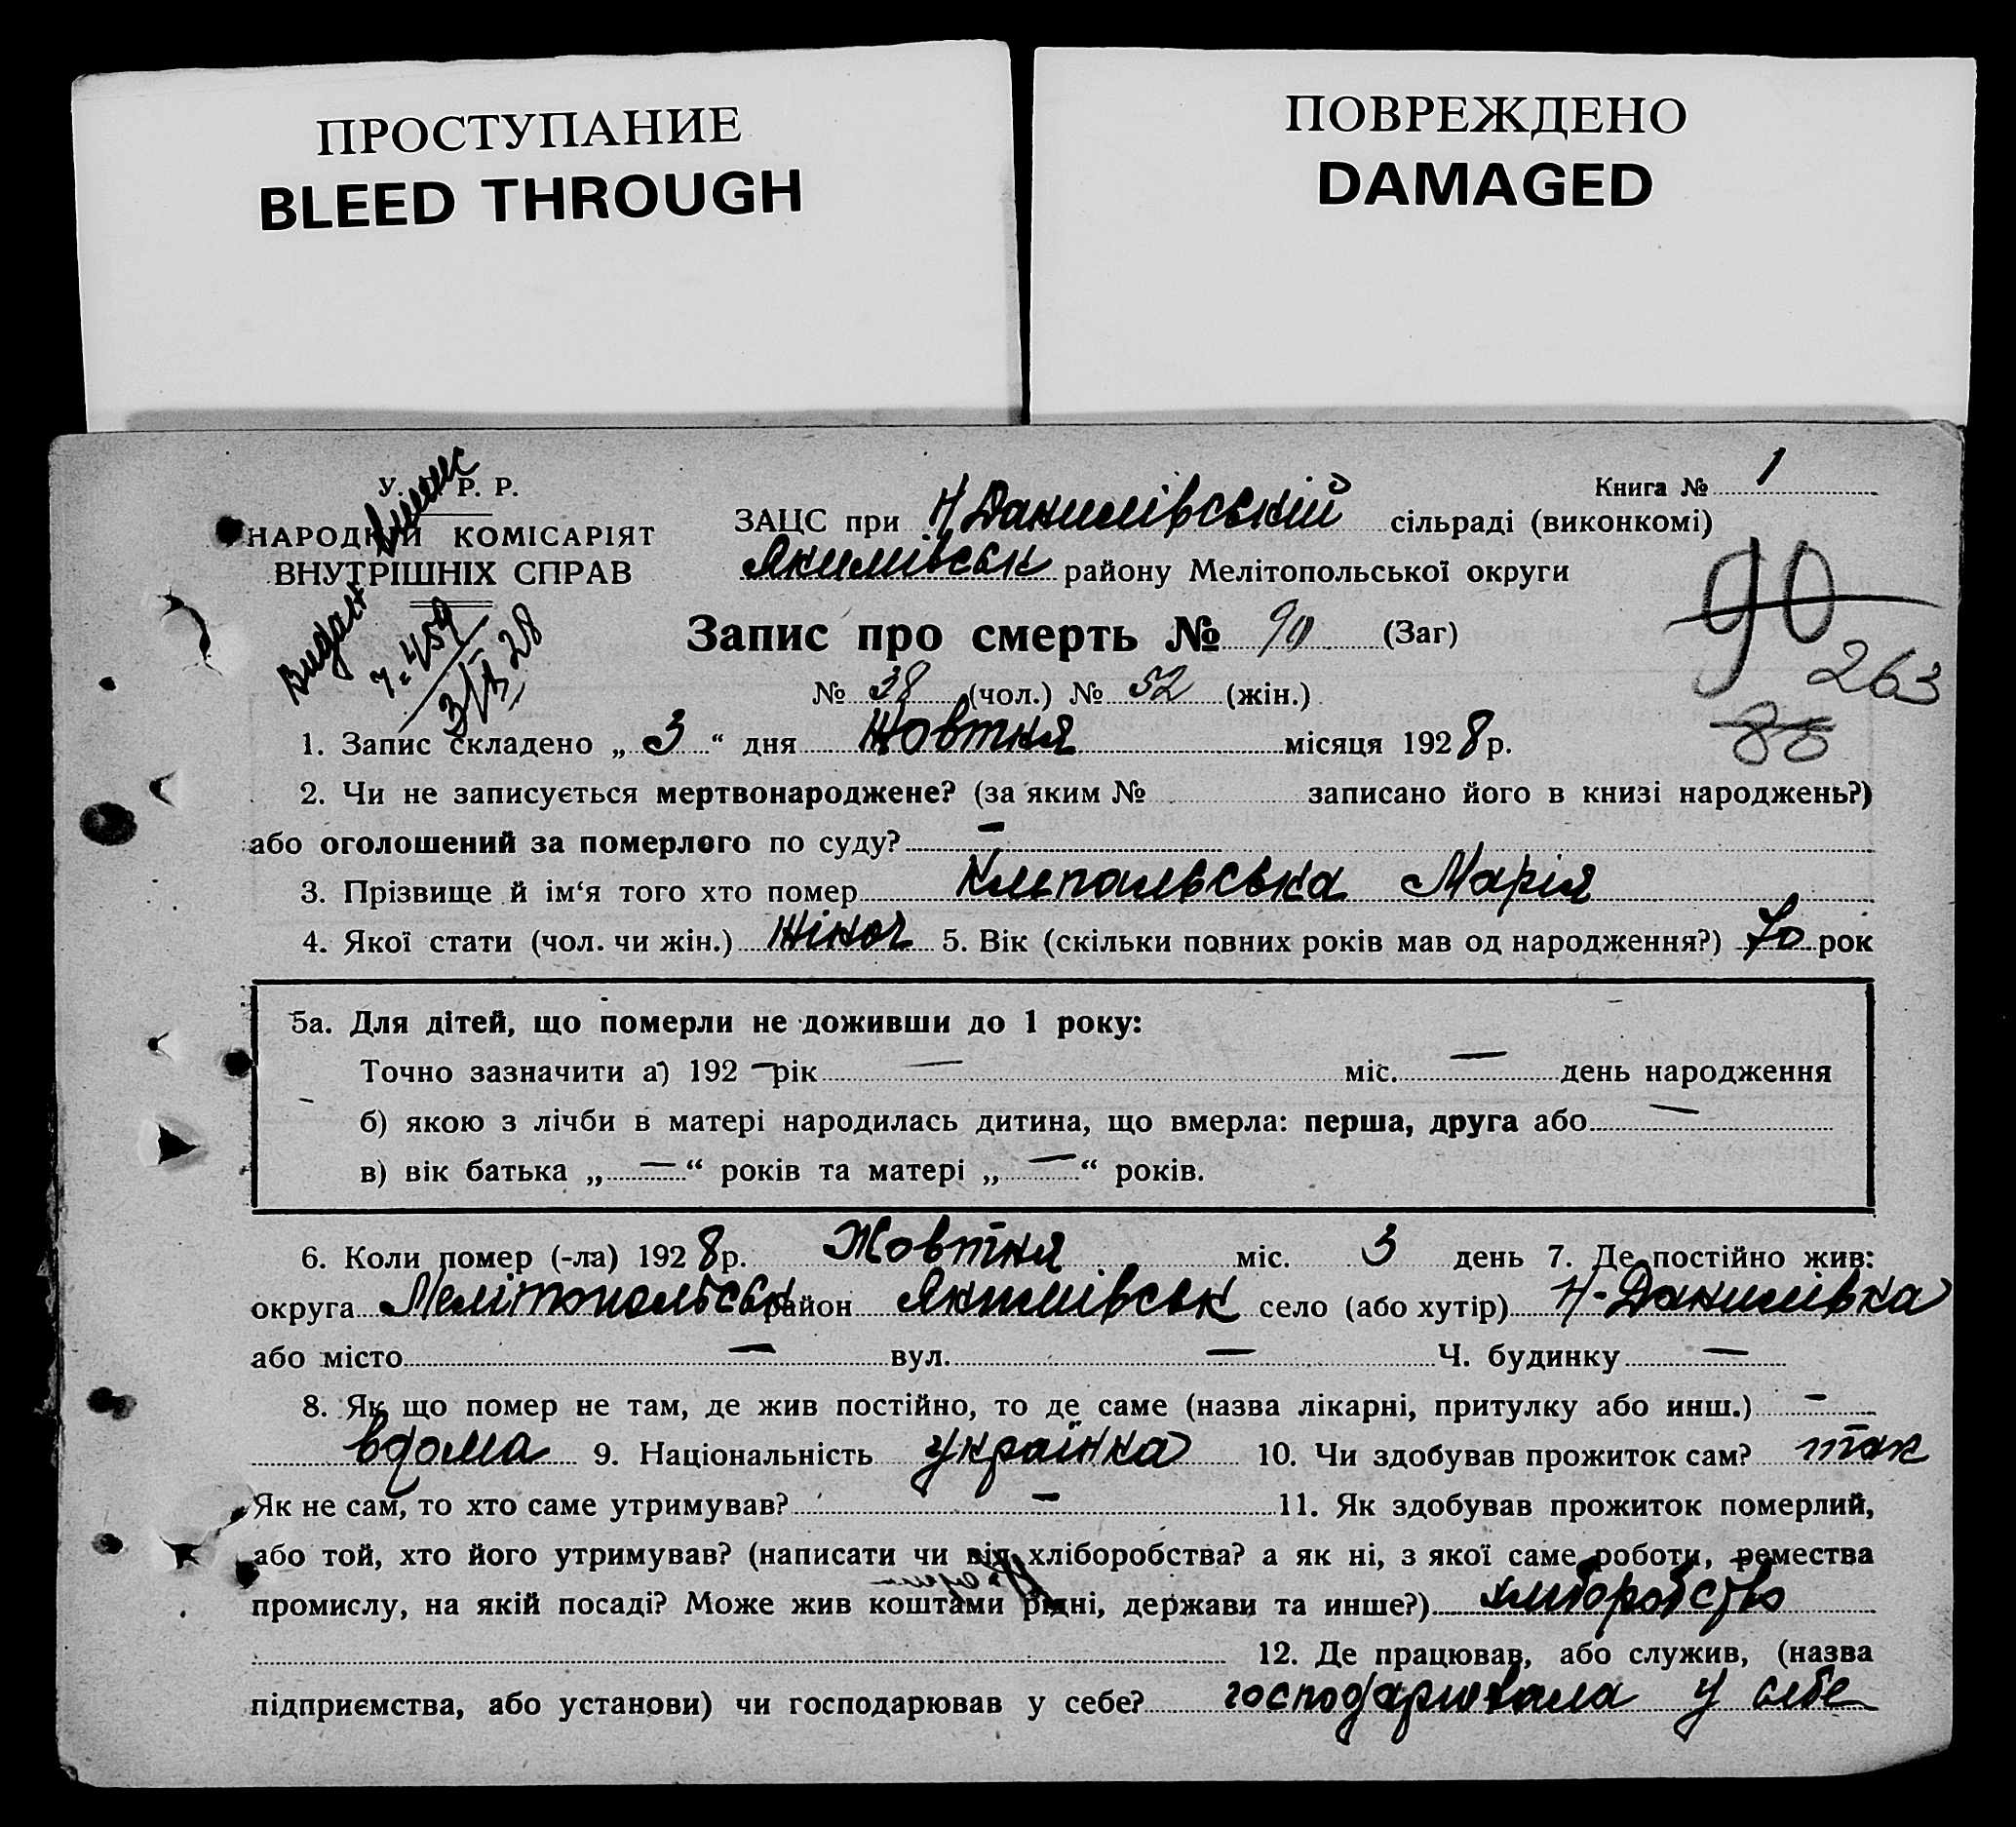 ПРОСТУПАНИЕ
BLEED THROUGH
ПОВРЕЖДЕНО
DAMAGED
У. Р. Р.
НАРОДНИЙ КОМІСАРІЯТ
ВНУТРІШНІХ СПРАВ
3/X 28
Книга № 1
ЗАЦС при Н Данилівській сільраді (виконкомі)
Якимівськ району Мелітопольської округи
Запис про смерть № 90 (Заг)
90
263
88
№ 38 (чол.) № 52 (жін.)
1. Запис складено „ 3 “ дня Жовтня місяця 1928 р.
2. Чи не записується мертвонароджене? (за яким № записано його в книзі народжень?)
або оголошений за померлого по суду? —
3. Прізвище й ім‘я того хто помер Клепальська Марія
4. Якої стати (чол. чи жін.) Жіноч 5. Вік (скільки повних років мав од народження?) 70 рок
5а. Для дітей, що померли не доживши до 1 року:
Точно зазначити а) 192 — рік — міс. — день народження
б) якою з лічби в матері народилась дитина, що вмерла: перша, друга або —
в) вік батька „ — “ років та матері „ — “ років.
6. Коли помер (-ла) 1928 р. Жовтня міс. 3 день 7. Де постійно жив:
округа Мелітопольськ район Якимівськ село (або хутір) Н-Данилівка
або місто — вул. — Ч. будинку —
8. Як що помер не там, де жив постійно, то де саме (назва лікарні, притулку або инш.) —
вдома 9. Національність українка 10. Чи здобував прожиток сам? так
Як не сам, то хто саме утримував? — 11. Як здобував прожиток померлий,
або той, хто його утримував? (написати чи від хліборобства? а як ні, з якої саме роботи, ремества
промислу, на якій посаді? Може жив коштами рідні, держави та инше?) хліборобство
12. Де працював, або служив, (назва
підприємства, або установи) чи господарював у себе? господарювала у себе